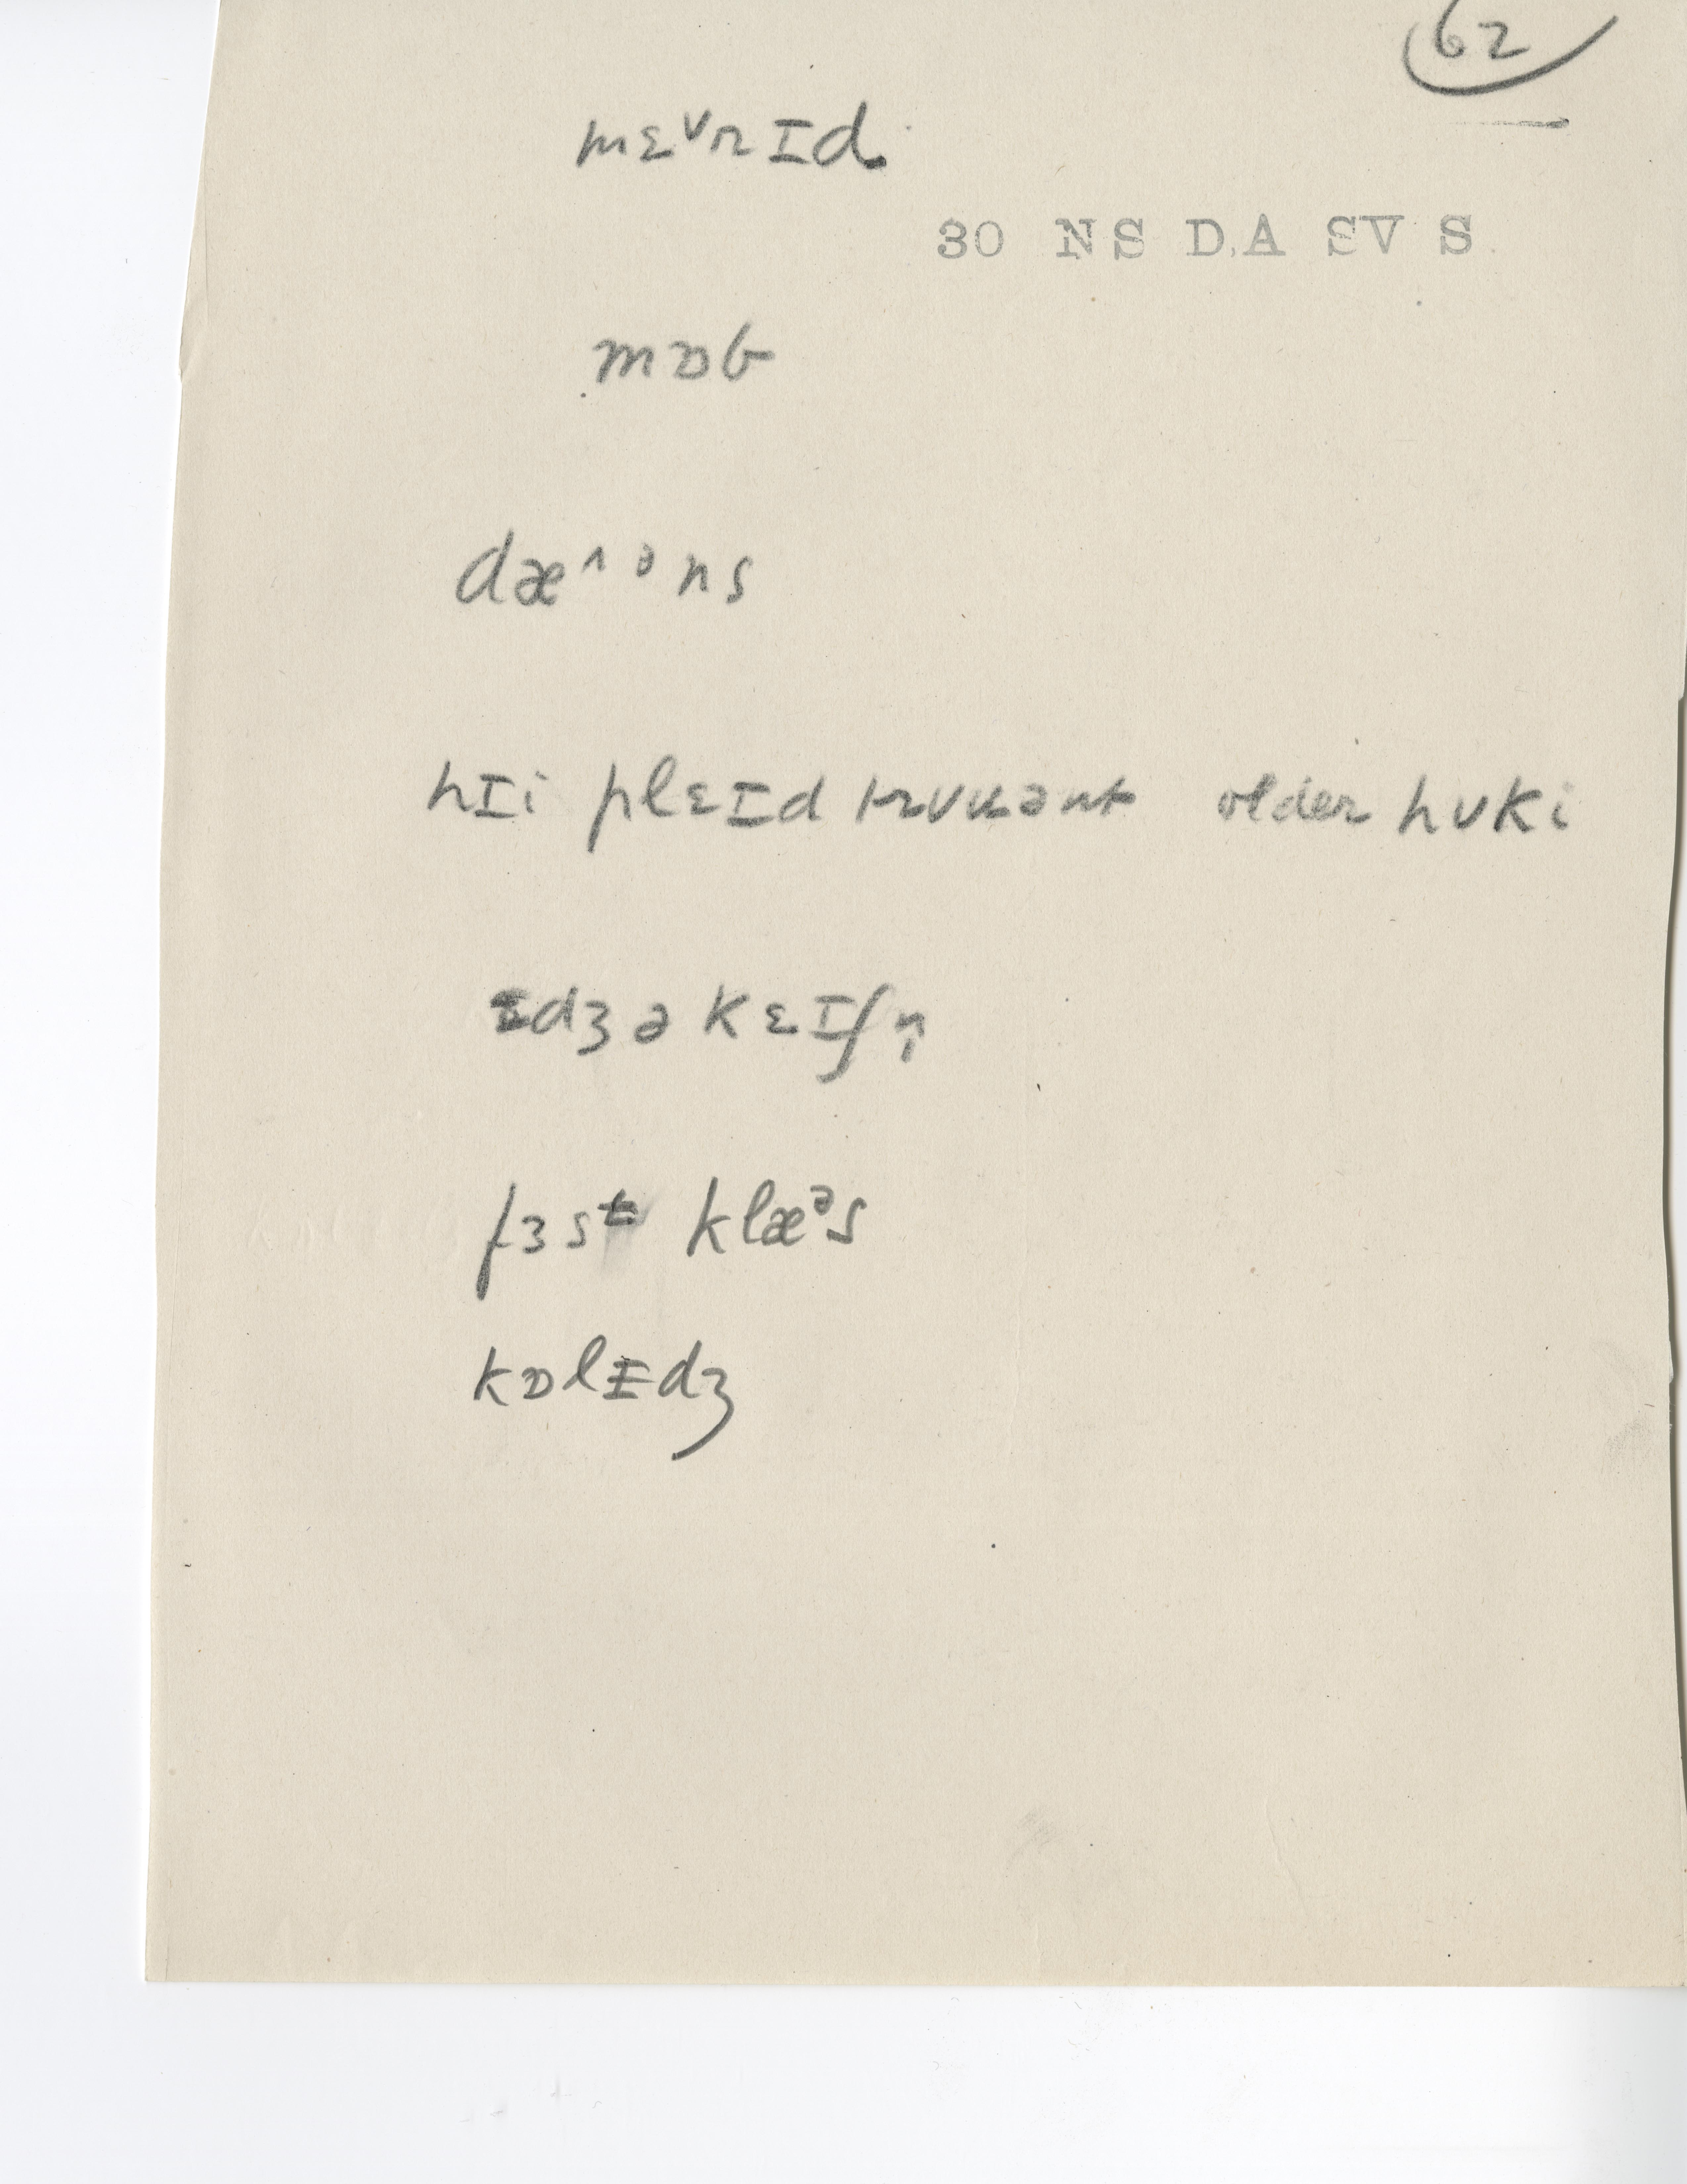 62
mɛᵛrɪd
30 NS D.A SV S
mɒb
dæ^ᵊns
hɪi plɛɪd truuənt older hʊki
ɛdʒəkɛɪʃn̩
fɜsᵗ klæᵊs
kɒlɪdʒ